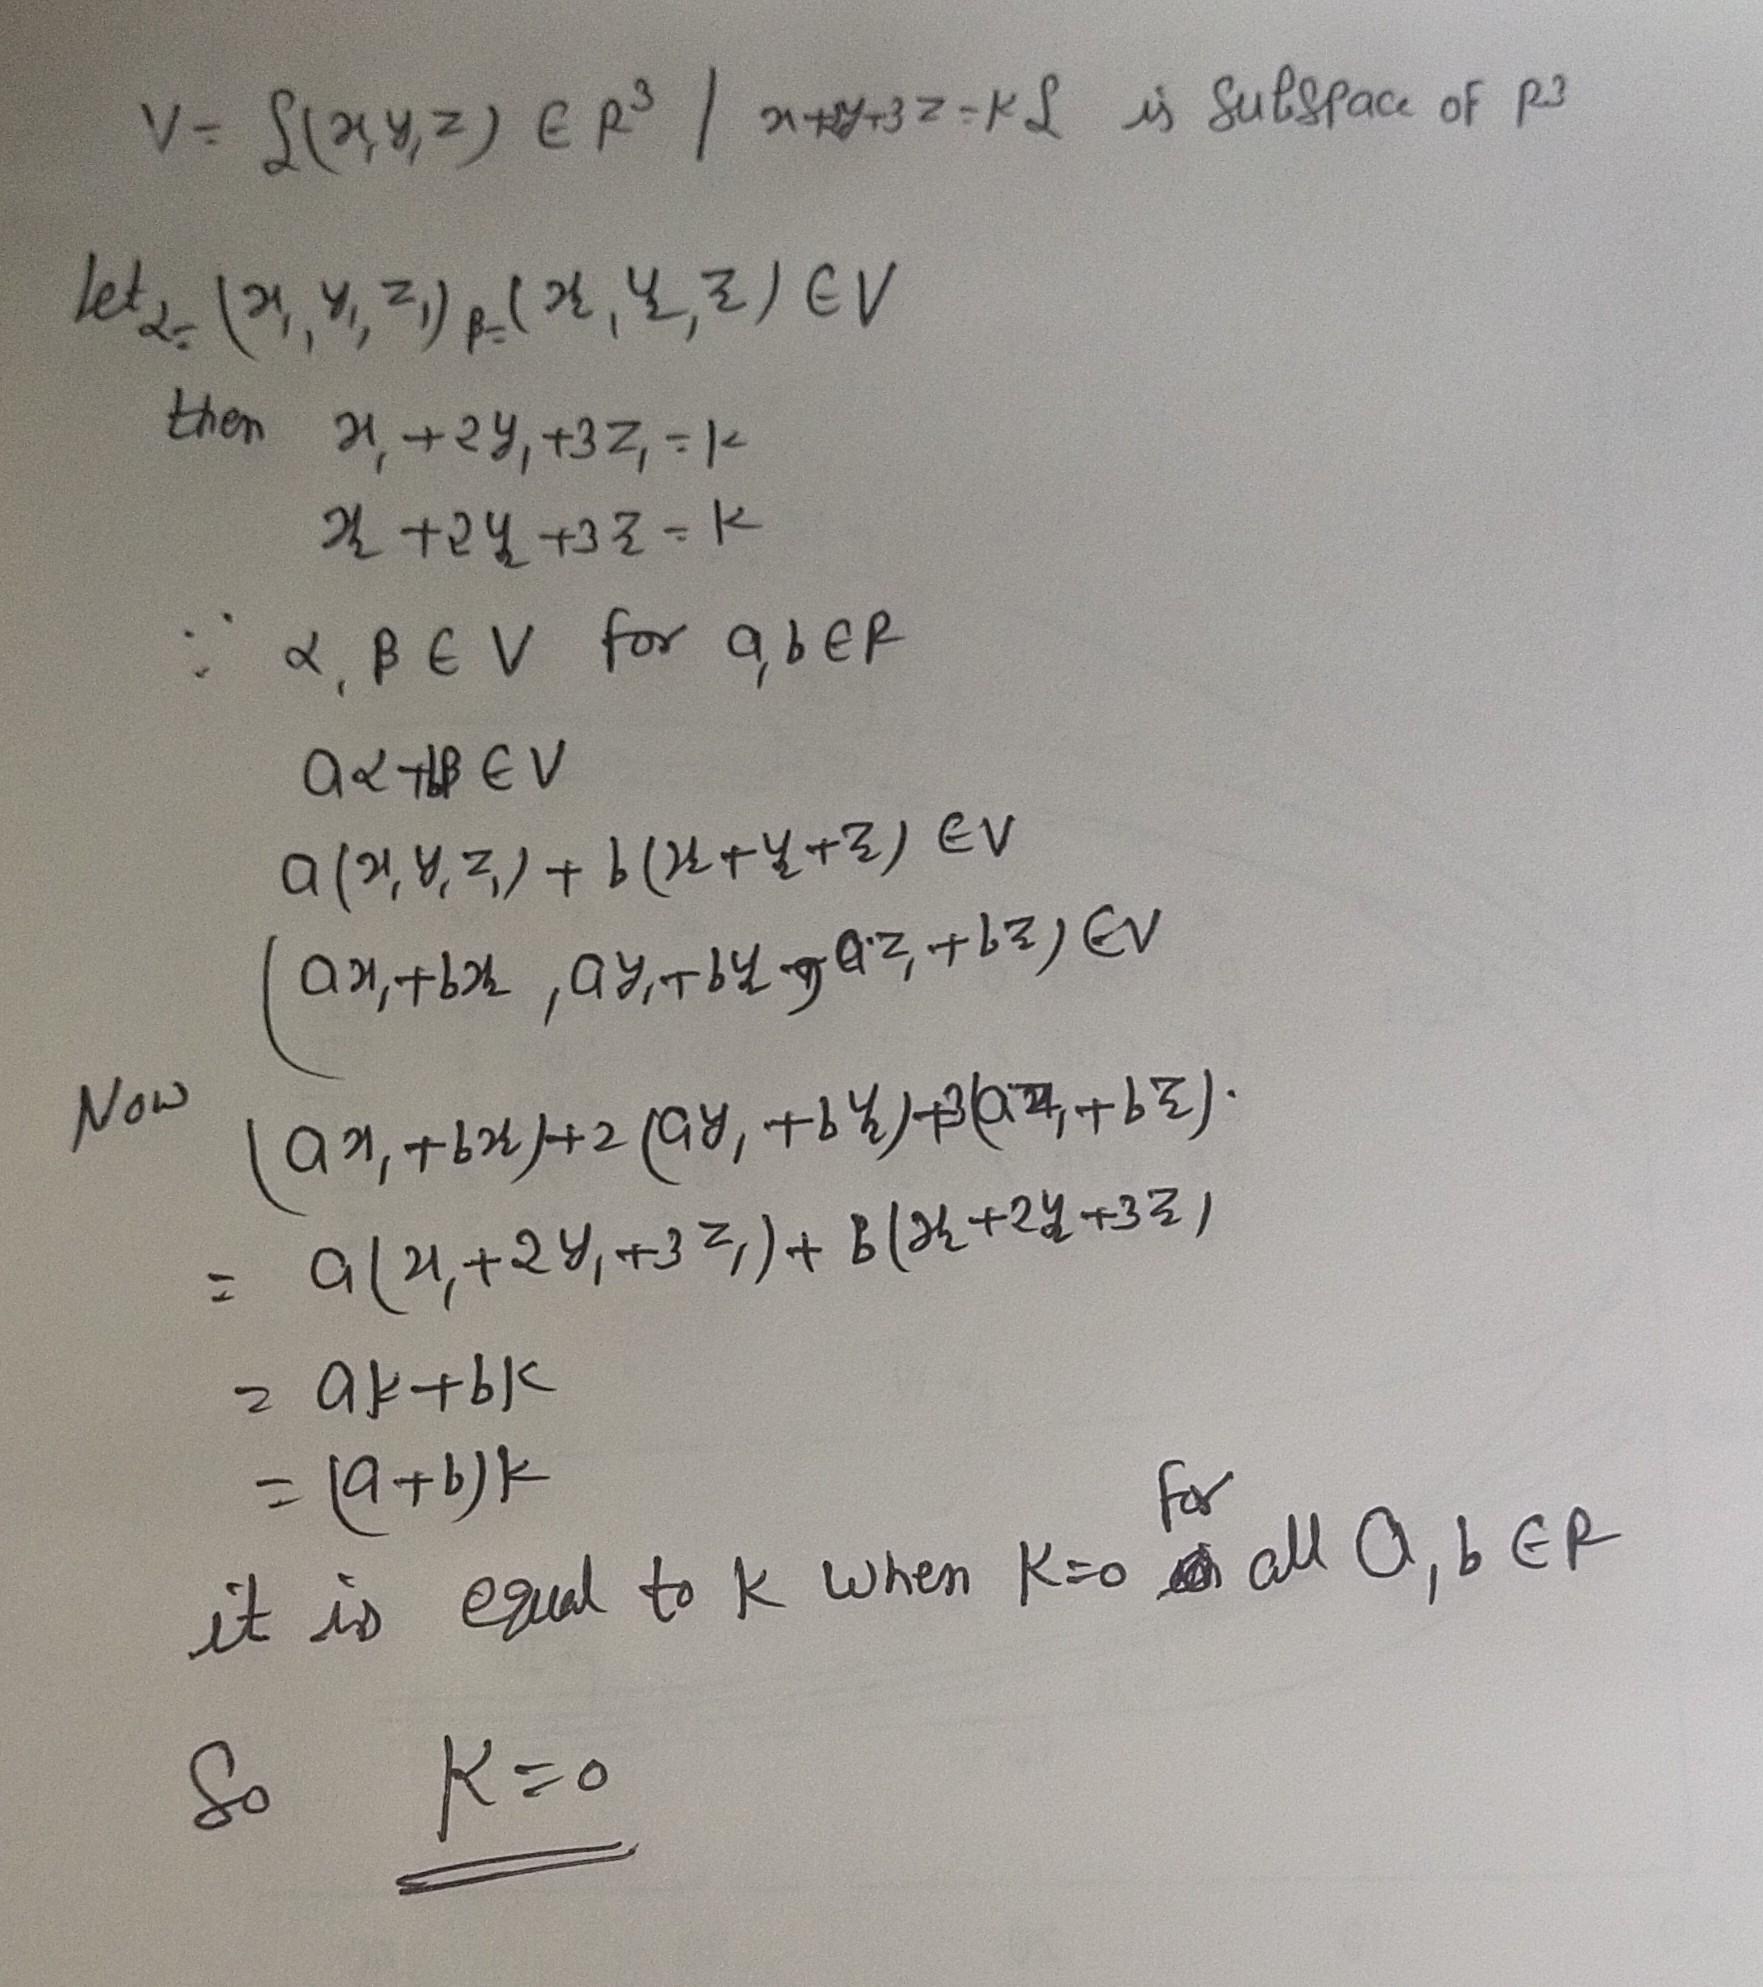 V = {(x,y,z) ∈ R³ / x+2y+3z=K} is subspace of R³
let α=(x₁,y₁,z₁) β=(x₂,y₂,z₂) ∈ V
then x₁+2y₁+3z₁=k
x₂+2y₂+3z₂=k
∵ α,β ∈ V for a,b ∈ R
aα+bβ ∈ V
a(x₁,y₁,z₁)+b(x₂+y₂+z₂) ∈ V
(ax₁+bx₂, ay₁+by₂, az₁+bz₂) ∈ V
Now (ax₁+bx₂)+2(ay₁+by₂)+3(az₁+bz₂).
= a(x₁+2y₁+3z₁)+b(x₂+2y₂+3z₂)
= ak+bk
= (a+b)k
it is equal to k when K=0 for all a,b ∈ R
So K=0